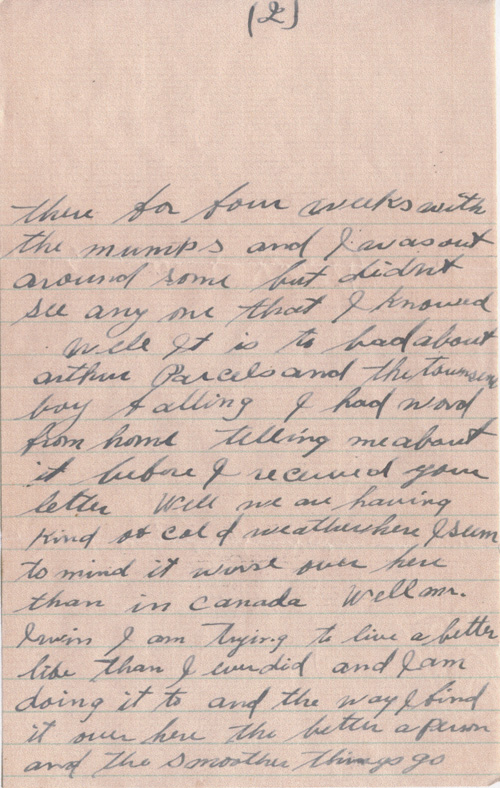 (2)
there for four weeks with
the mumps and I was out
around some but didnt
see any one that I knowed
Well It is to bad about
arthur Parcels and the
boy falling I had word
from home telling me about
it before I received your
letter Well we are having
kind of cold weather here I seem
to mind it worse over here
than in Canada Well mr.
Irwin I am trying to live a better
life than I ever did and I am
doing it to and the way I find
it over here the better a person
and the smoother things go